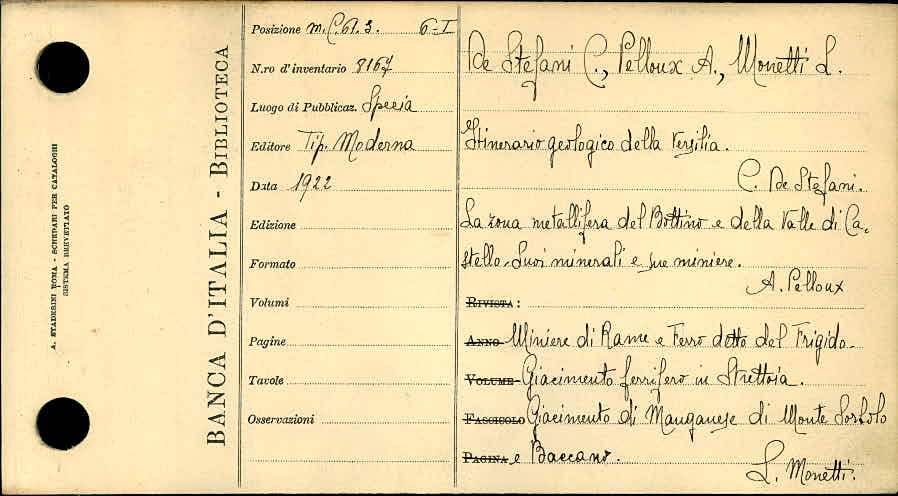 A. STADERINI ROMA - SCHEDARI PER CATALOGHI
SISTEMA BREVETTATO
BANCA D'ITALIA - BIBLIOTECA
Posizione m. C. 61. 3. 6-I
N.ro d'inventario 8167
Luogo di Pubblicaz. Specia
Editore Tip. Moderna
Data 1922
Edizione
Formato
Volumi
Pagine
Tavole
Osservazioni
De Stefani C., Pelloux A., Monetti L.
Itinerario geologico della Versilia.
C. De Stefani.
La zona metallifera del Bottino e della Valle di Ca-
stello. Suoi minerali e sue miniere.
A. Pelloux
RIVISTA:
ANNO Miniere di Rame e Ferro detto del Frigido.
VOLUME Giacimento ferrifero in Strettoia.
FASCICOLO Giacimento di Manganese di Monte Sorbolo
PAGINA e Baccano.
L. Monetti.